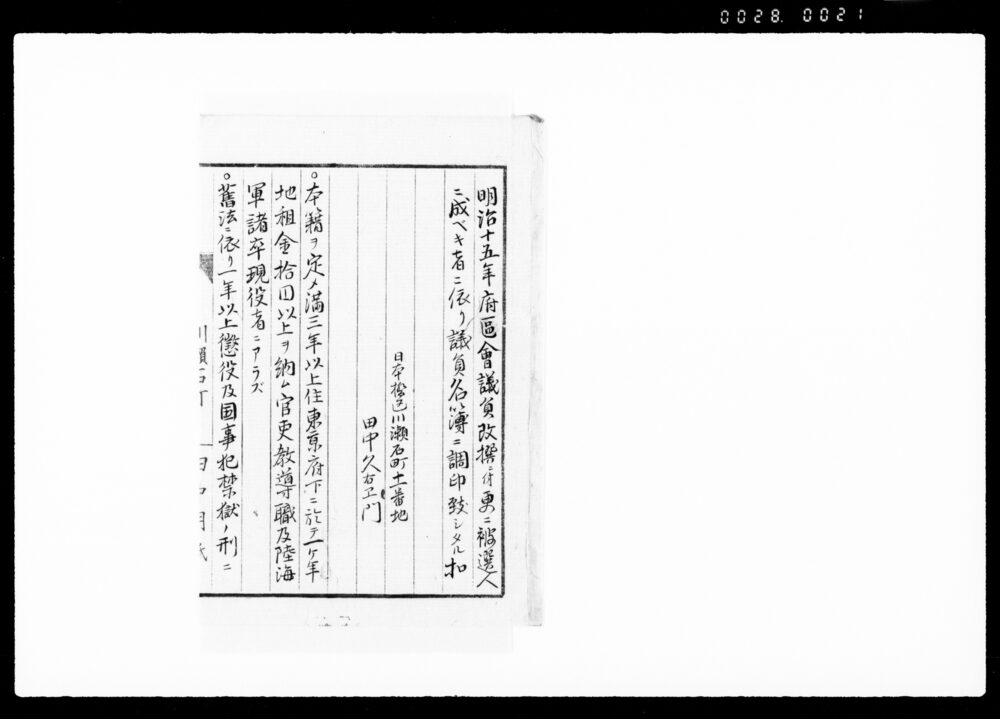 0028.0021
明治十五年府區會議員改撰ニ付更ニ被選人
ニ成ベキ者ニ依リ議員名簿ニ調印致シタル扣
日本橋区川瀬石町十一番地
田中久右エ門
。本籍ヲ定メ満三年以上住東京府下ニ於テ一ケ年
地租金拾円以上ヲ納ム官吏教導職及陸海
軍諸卒現役者ニアラズ
。舊法ニ依リ一年以上懲役及国事犯禁獄ノ刑ニ
川瀬石町